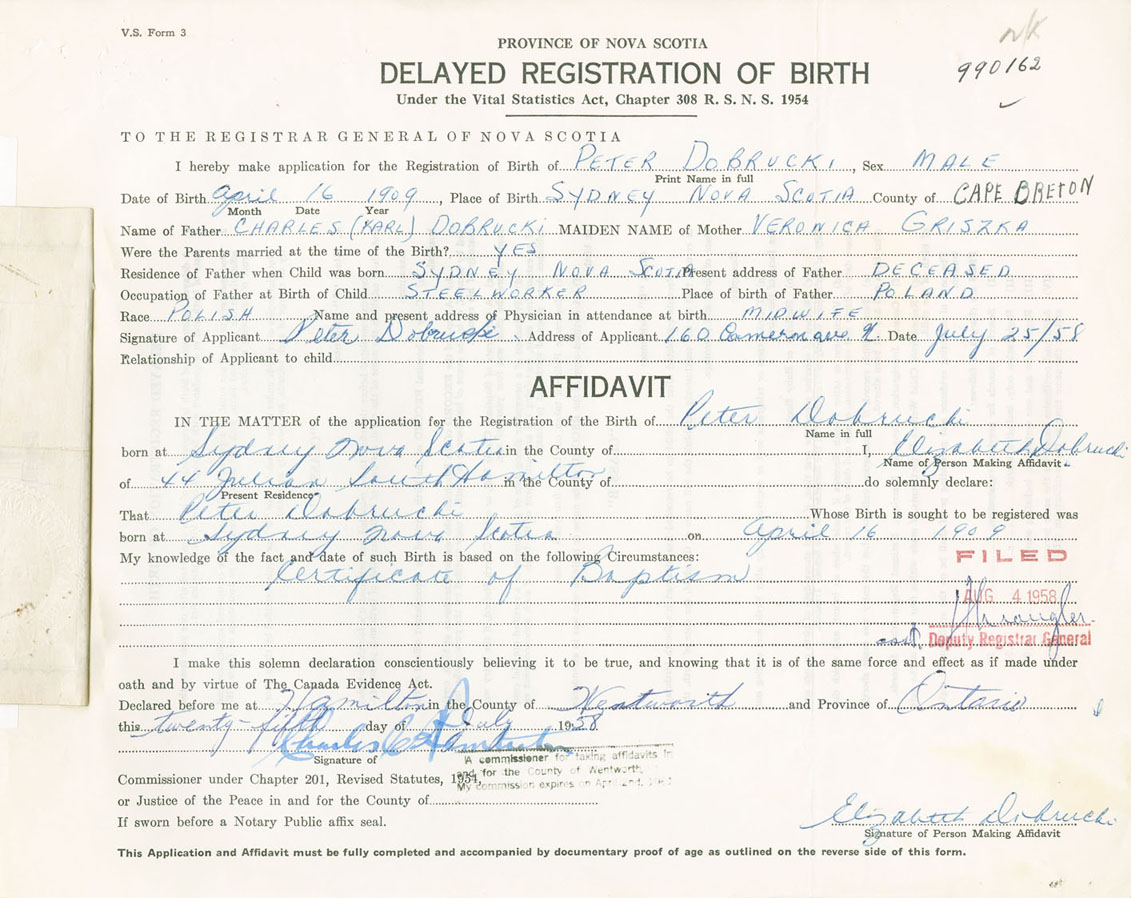 V.S. Form 3
PROVINCE OF NOVA SCOTIA
DELAYED REGISTRATION OF BIRTH
990162
Under the Vital Statistics Act, Chapter 308 R. S. N. S. 1954
TO THE REGISTRAR GENERAL OF NOVA SCOTIA
I hereby make application for the Registration of Birth of PETER DOBRUCKI, Sex MALE
Print Name in full
Date of Birth April 16 1909, Place of Birth SYDNEY NOVA SCOTIA County of CAPE BRETON
Month Date Year
Name of Father CHARLES (KARL) DOBRUCKI MAIDEN NAME of Mother VERONICA GRISZKA
Were the Parents married at the time of the Birth? YES
Residence of Father when Child was born SYDNEY NOVA SCOTIA Present address of Father DECEASED
Occupation of Father at Birth of Child STEELWORKER Place of birth of Father POLAND
Race POLISH Name and present address of Physician in attendance at birth MIDWIFE
Signature of Applicant Peter Dobrucki Address of Applicant 160 Cameron ave N. Date July 25/58
Relationship of Applicant to child
AFFIDAVIT
IN THE MATTER of the application for the Registration of the Birth of Peter Dobrucki
Name in full
born at Sydney Nova Scotia in the County of I, Elizabeth Dobrucki
Name of Person Making Affidavit
of 44 Julian South Hamilton in the County of do solemnly declare:
Present Residence
That Peter Dobrucki Whose Birth is sought to be registered was
born at Sydney Nova Scotia on April 16 1909
My knowledge of the fact and date of such Birth is based on the following Circumstances:
FILED
Certificate of Baptism
AUG 4 1958
Deputy Registrar General
I make this solemn declaration conscientiously believing it to be true, and knowing that it is of the same force and effect as if made under
oath and by virtue of The Canada Evidence Act.
Declared before me at Hamilton in the County of Wentworth and Province of Ontario
this twenty-fifth day of July 1958
Charles C
Signature of
A commissioner for taking affidavits in
and for the County of Wentworth,
My commission expires on
Commissioner under Chapter 201, Revised Statutes, 1954,
or Justice of the Peace in and for the County of
If sworn before a Notary Public affix seal.
Elizabeth Dobrucki
Signature of Person Making Affidavit
This Application and Affidavit must be fully completed and accompanied by documentary proof of age as outlined on the reverse side of this form.